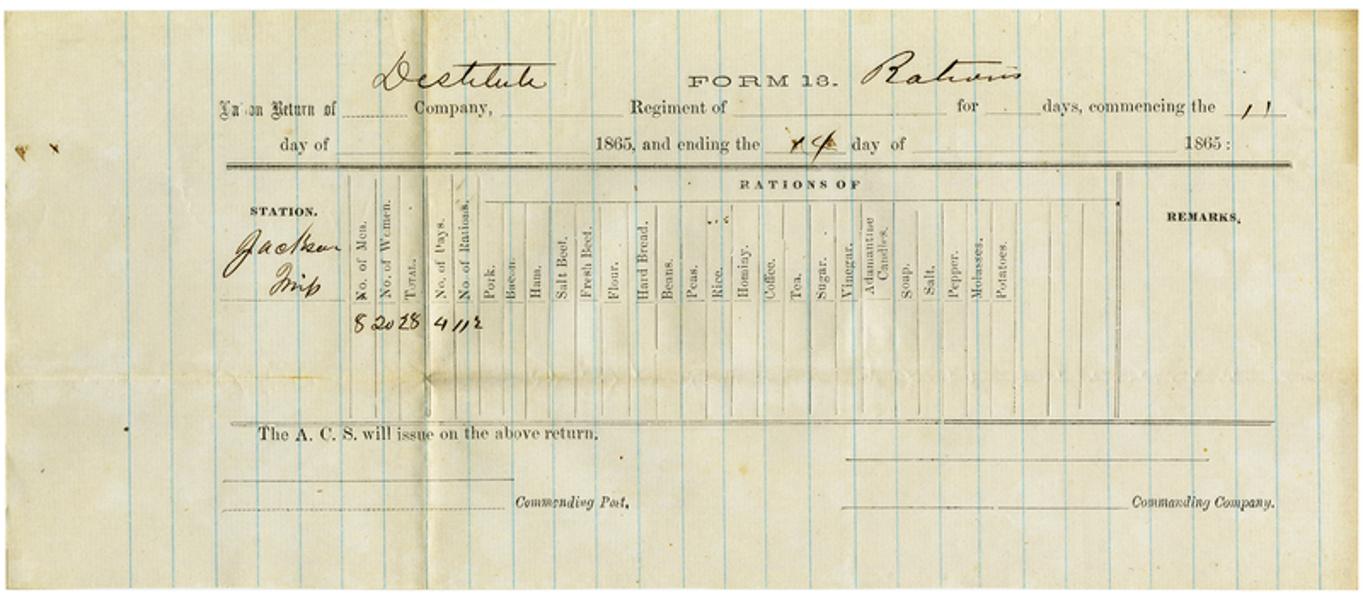 Destitute FORM 13. Rations
Ration Return of Company, Regiment of for days, commencing the 11
day of 1865, and ending the 14 day of 1865:
RATIONS OF
STATION. No. of Men. No. of Women. TOTAL. No. of Days. No. of Rations. Pork. Bacon. Ham. Salt Beef. Fresh Beef. Flour. Hard Bread. Beans. Peas. Rice. Hominy. Coffee. Tea. Sugar. Vinegar. Adamantine Candles. Soap. Salt. Pepper. Molasses. Potatoes. REMARKS.
Jackson
Miss
8 20 28 4 112
The A. C. S. will issue on the above return.
Commanding Post. Commanding Company.